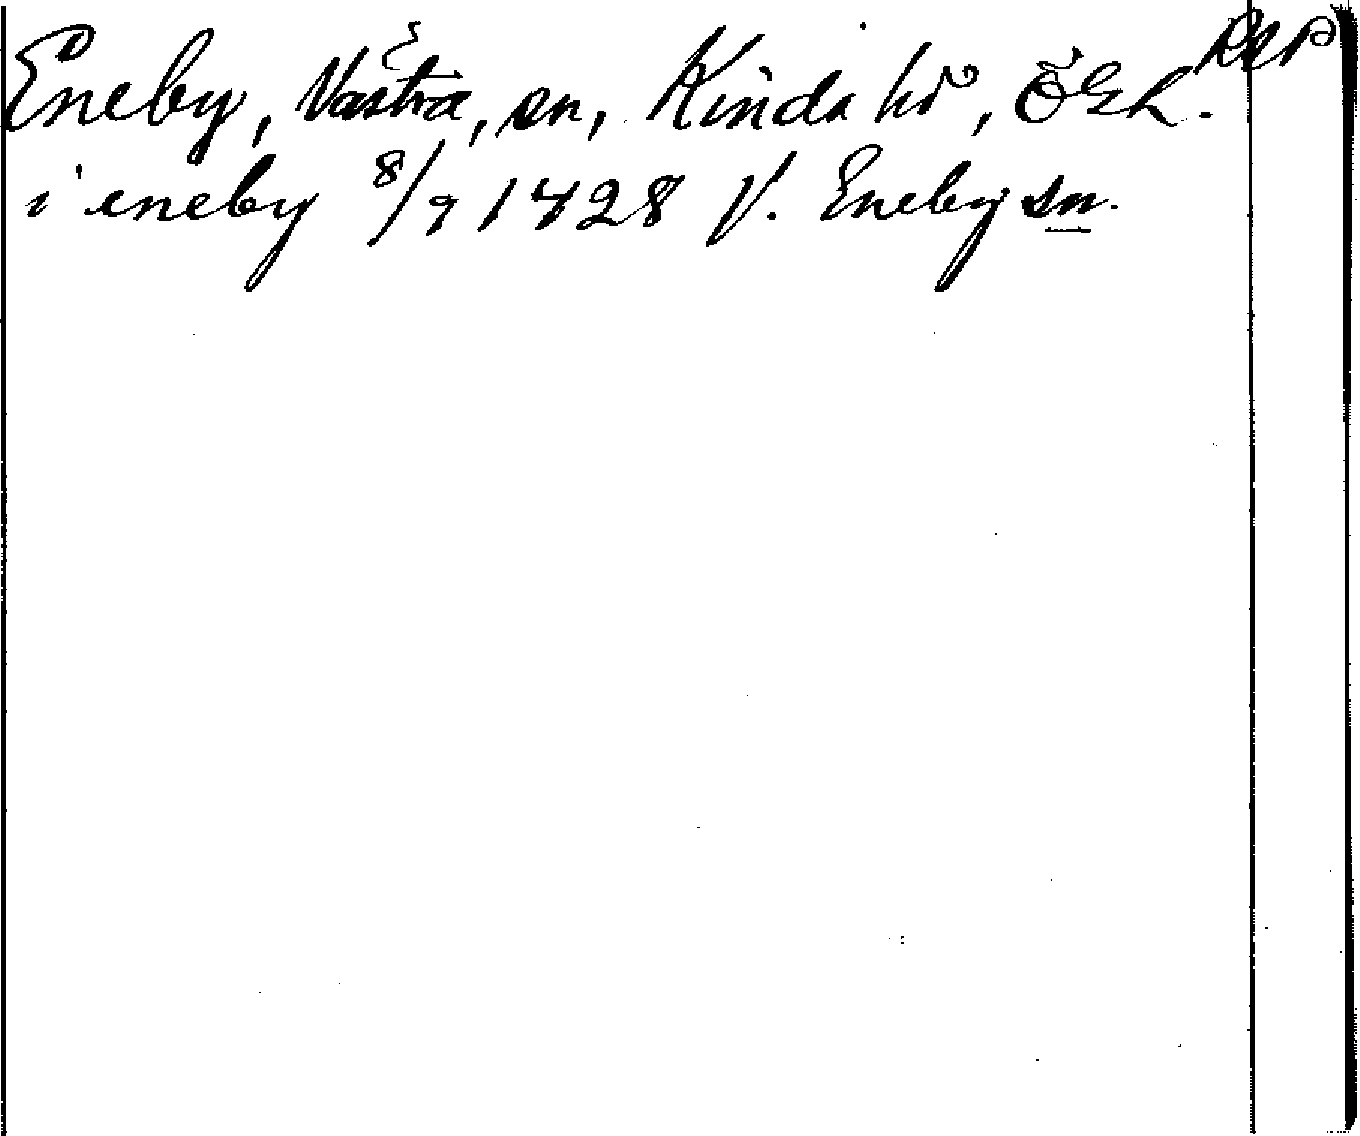 Eneby, Västra, sn, Kinda hd, ÖGL. RAP
i eneby 8/9 1428 V. Eneby sn.